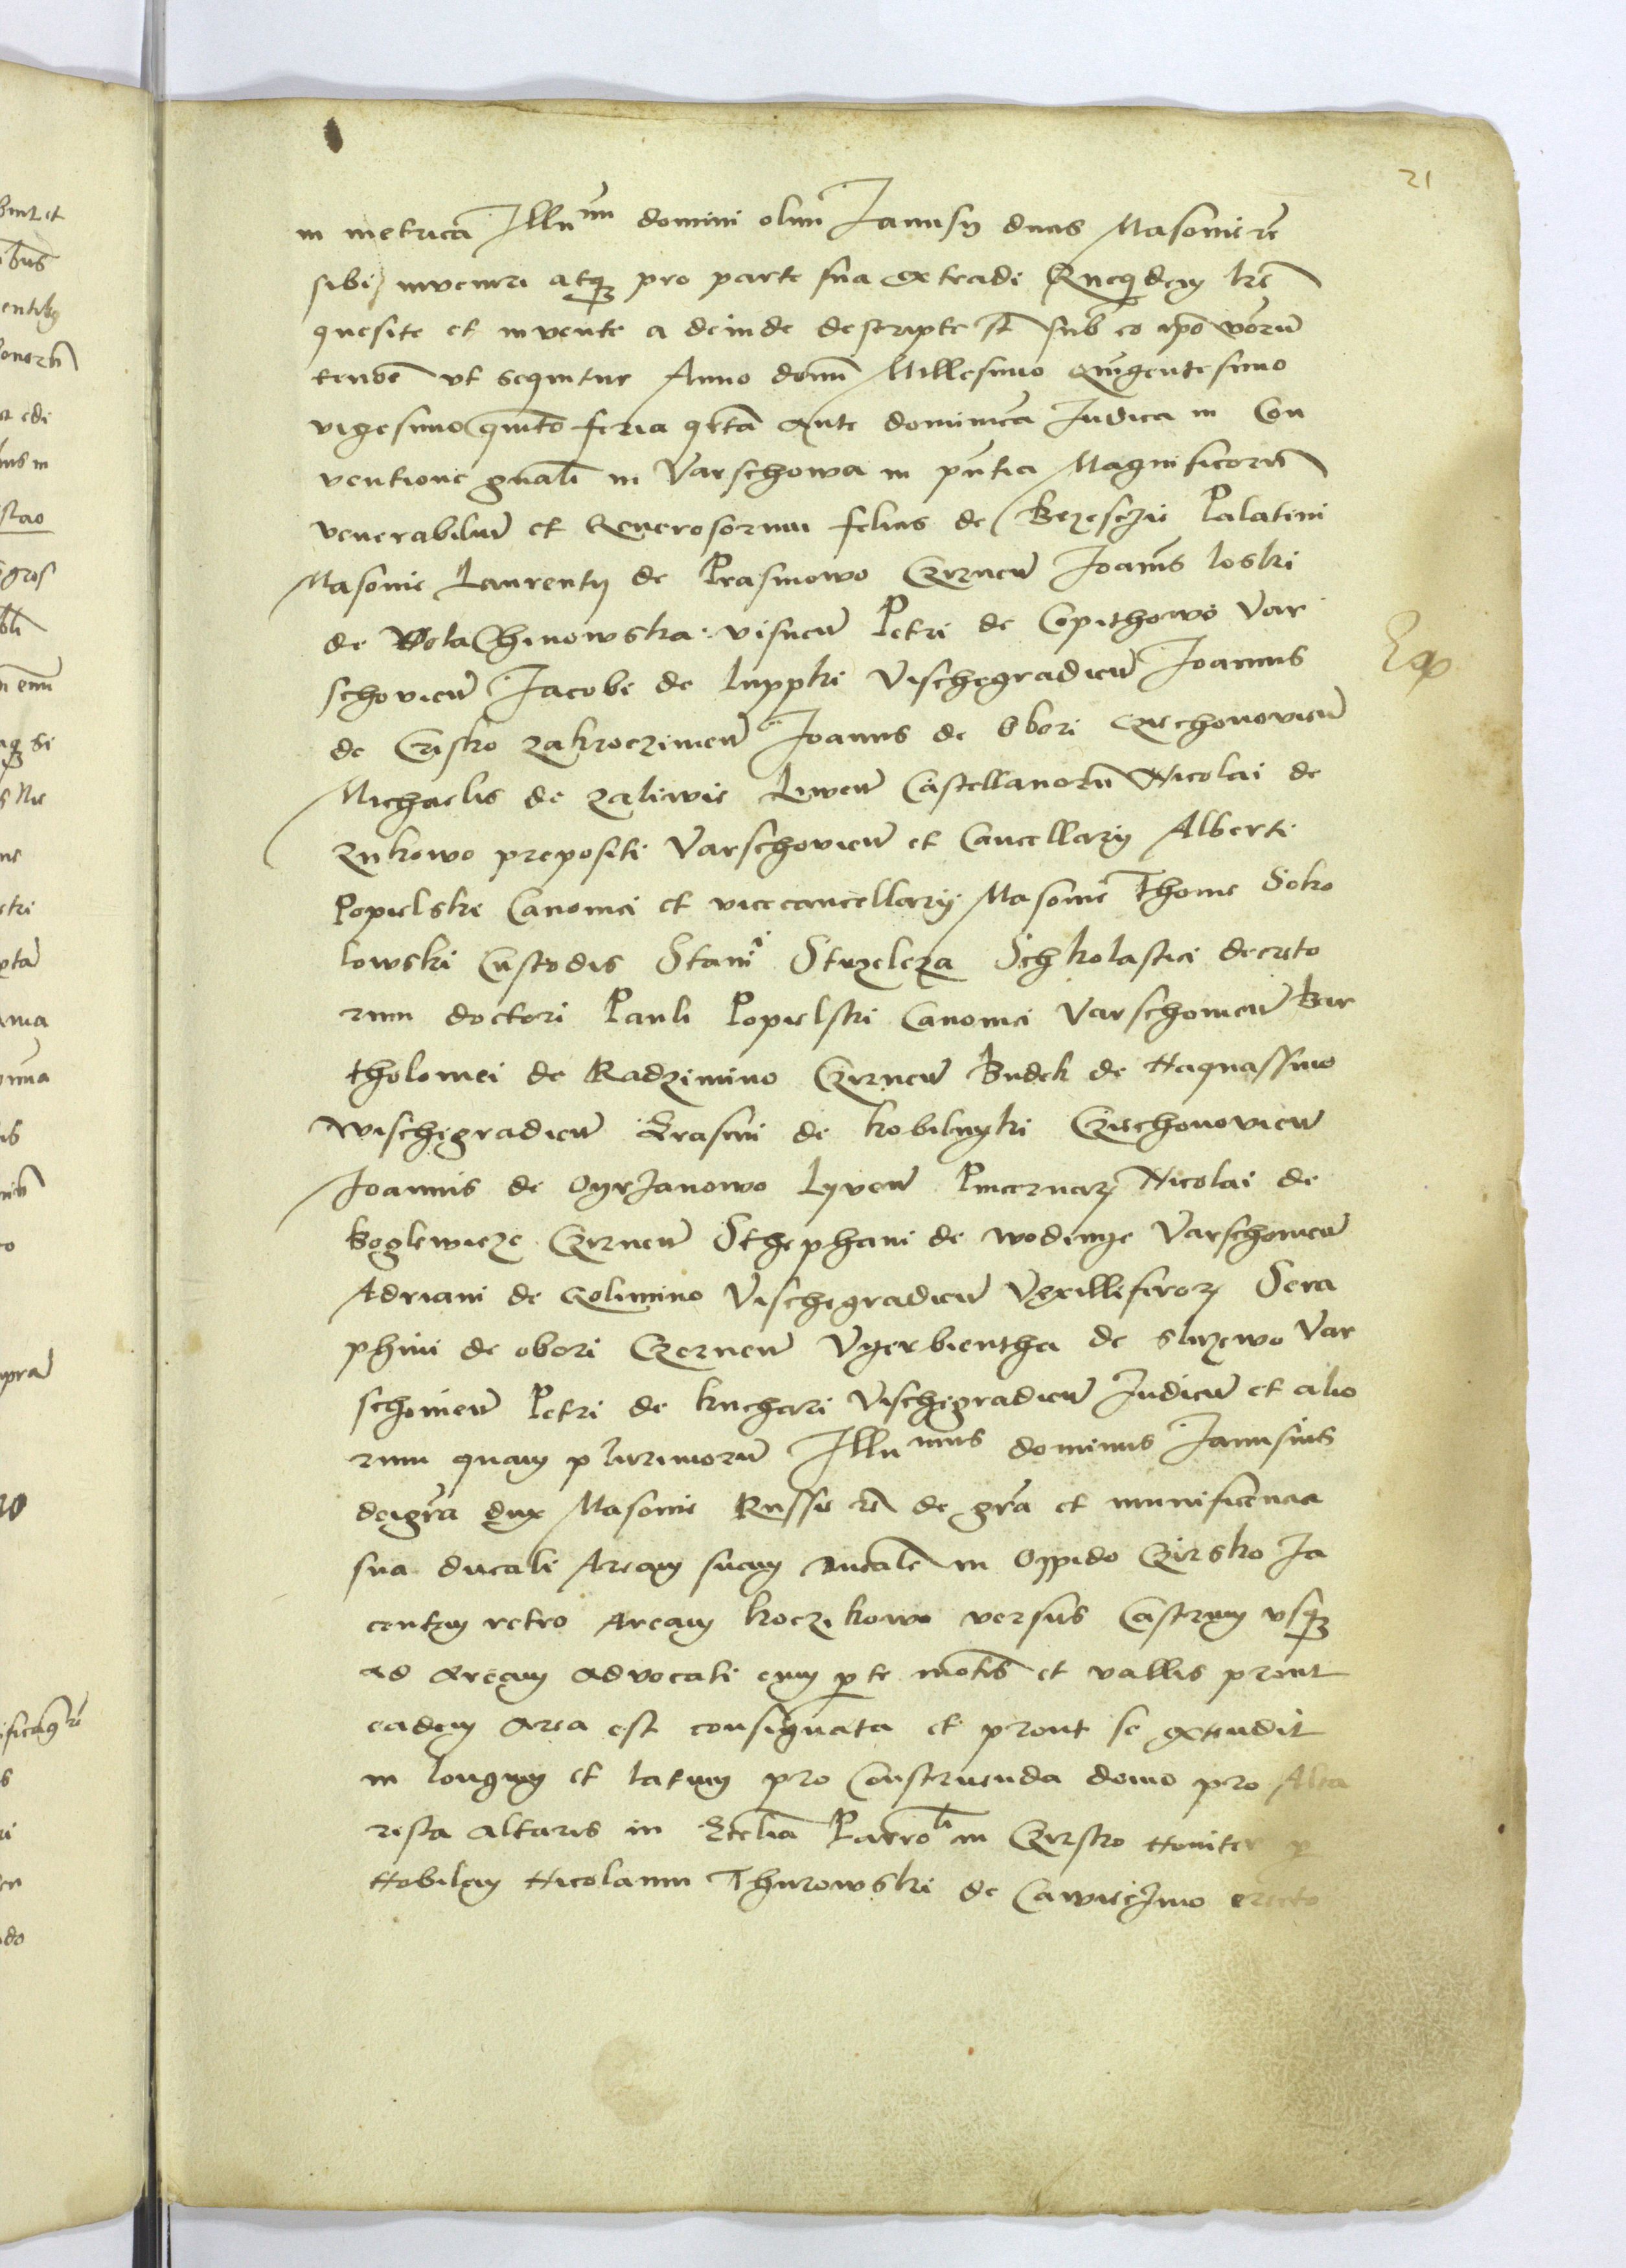 21
in metrica Illu mi domini olim Janusij ducis Masovie rc
sibi inveniri atq3 pro parte sua extradi Queq3dem lre
quesite et invente a deinde descripte st sub eo ipo verborum
tenore ut sequitur Anno domi Millesimo quigentesimo
vigesimo quinto feria qrta ante dominica Judica in Con
ventione gnali in Varschowa in pntia Magnificorum
venerabilium et Generosorum felicis de Brzesczie Palatini
Masovie Laurentij de Prasmowo Czrnen Joannis loski
de Wola Chinowska visnen Petri de Copithowo Var
schovien Jacobi de luppki Vischegradien Joannis
de Crisko zakroczimen Joannis de Obori Cziechonovien
Michaelis de zaliwie Liwen Castellanorum Nicolai de
zukowo prepositi Varschovien et Cancellarij Alberti
Popielski Canonici et vicecancellarij Masovie Thome Soko
lowski Custodis Stani Strzelcza Scholastici decreto
rum doctori Pauli Popielski Canonici Varschovien Bar
tholomei de Radzimino Czrnen Budek de Naquassino
wischegradien Erasmi de kobilnyki Cziechonovien
Joannis de Cyrzanowo Lyven Pincernarz Nicolai de
Boglewicze Czrnen Sthephani de wodinye Varschovien
Adriani de Golimino Vischegradien Vexilliferorz Sera
phini de obori Czernen Vyerbientha de sluzewo Var
schovien Petri de kuchari Vischegradien Judicum et alio
rum quam plurimorum Illu mus dominus Janusius
dei gra dux Masovie Russie rc de gra et munificencia
sua ducali Aream suam ducalem in Oppido Czirsko Ja
centem retro Aream koczikowo versus Castrum usq3
ad Aream advocati cum pte montis et vallis prout
eadem Area est consignata et prout se extendit
in longum et latum pro Construenda domo pro Alta
rista altaris in Ecclia Parroli in Czirsko Noviter p
Nobilem Nicolaum Thurowski de erecto